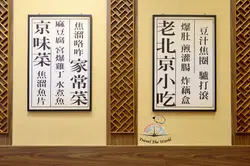 豆汁焦圈 驢打滾
爆肚 煎灌腸 炸藕盒
老北京小吃
焦溜咯吱 家常菜
麻豆腐 宮爆雞丁 水煮魚
京味菜 焦溜魚片
Travel The World